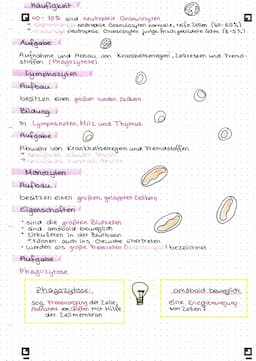 Häufigkeit
40-70% sind neutrophile Granulozyten
neutrophile Granulozyten normale, reife Zellen
neutrophile Granulozyten junge, frisch gebildete Zellen
Aufgabe
Aufnahme und Abbau von Krankheitserregern, Zellresten und Fremd-
stoffen (Phagozytose)
Lymphozyten
Aufbau
besitzen einen großen runden Zellkern
Bildung
in Lymphknoten, Milz und Thymus
Aufgabe
Abwehr von Krankheitserregern und Fremdstoffen
Monozyten
Aufbau
besitzen einen großen, gelappten Zellkern
Eigenschaften
sind die größten Blutzellen
sind amöboid beweglich
zirkulieren in der Blutbahn
können auch ins Gewebe übertreten
werden als große Fresszellen bezeichnet
Aufgabe
Phagozytose
Phagozytose:
sog. Fressvorgang der Zelle;
Aufnahme von Stoffen mit Hilfe
der Zellmembran
amöboid beweglich:
eine Kriechbewegung
von Zellen